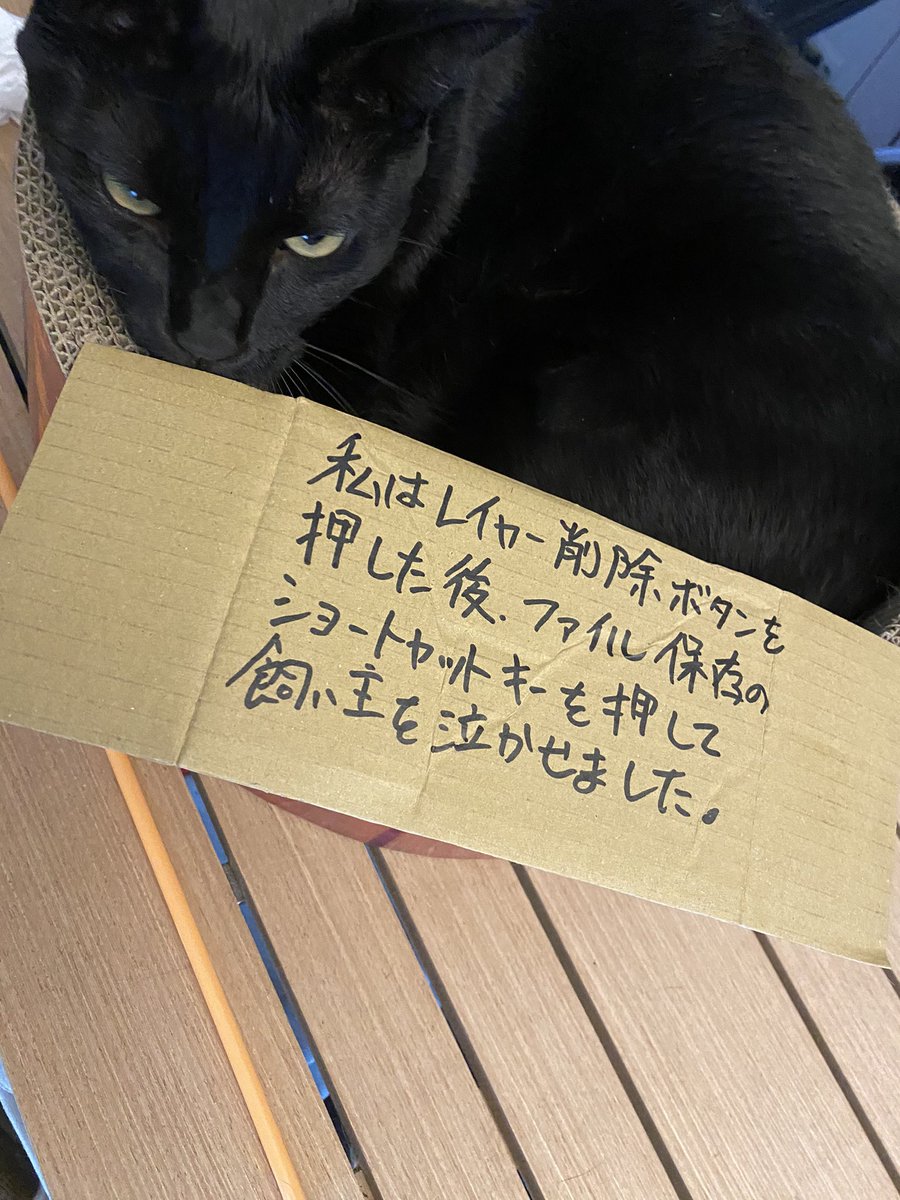 私はレイヤー削除ボタンを
押した後、ファイル保存の
ショートカットキーを押して
飼い主を泣かせました。